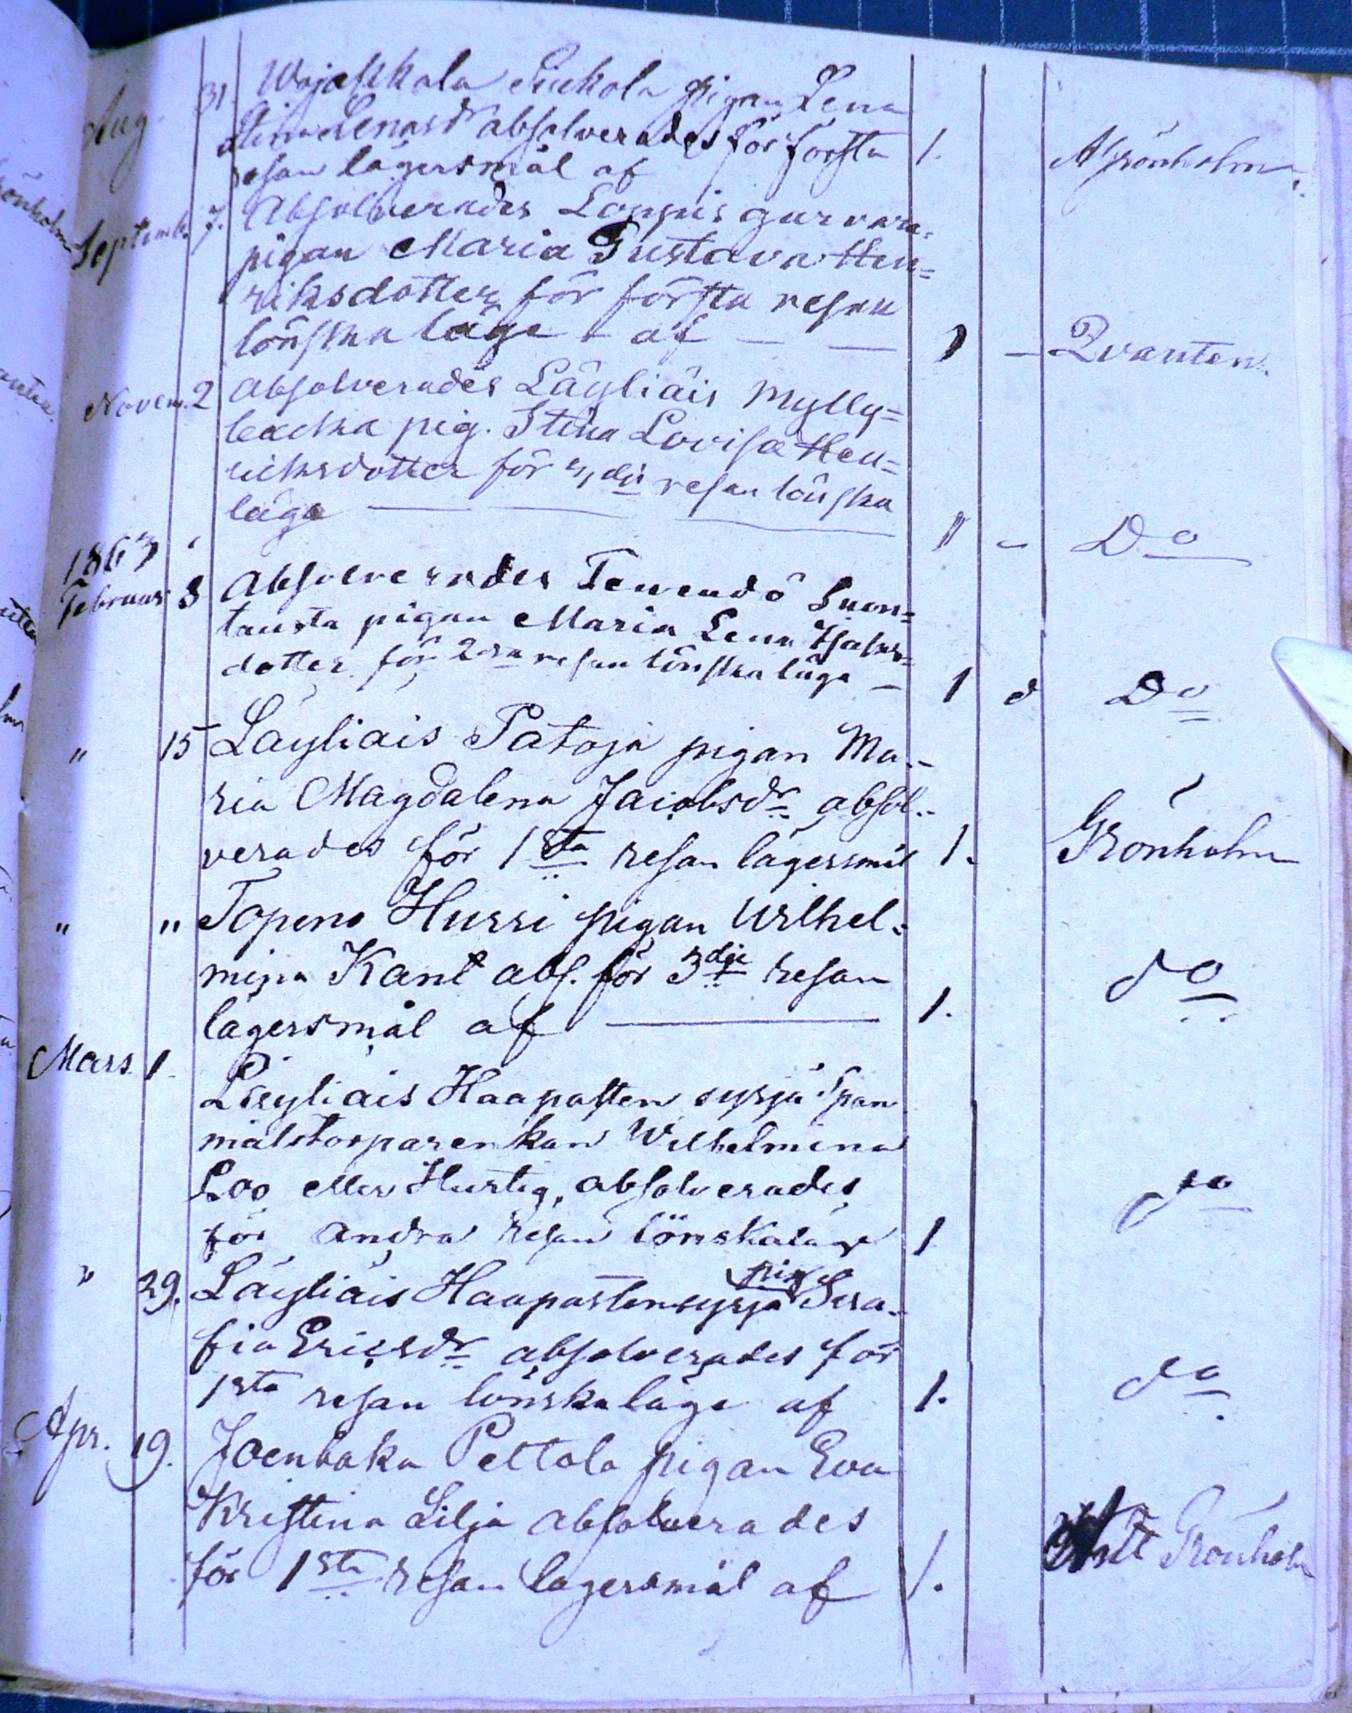 Aug. 31. Wojaskala Suckola pigan Lena
Stina Lenasdr absolverades för första
resan lägersmål af 1. A Grönholm.
Septemb. 7. Absolverades Loppis Gurvara-
pigan Maria Gustava Hen=
riksdotter för första resan
lönska läge - af — — 1 — Qvanten.
Novem. 2 Absolverades Läyliäis Mylly=
backa pig. Stina Lovisa Hen=
ricksdotter för dje resan lönska
läge — — — 1 - Do
1863
Februar 8 Absolverades Teuendö Suon=
tausta pigan Maria Lena Isaks=
dotter för 2ra resan lönska läge — 1 d Do
" 15 Läyliäis Patoja pigan Ma-
ria Magdalena Jacobsdr absol-
verades för 1sta resan lägersmål 1. Grönholm
" " Topeno Hurri pigan Wilhel-
mina Kant abs. för 3dje resan
lägersmål af — 1. do
Mars 1. Läyliäis Haapasten syrjä Span
målstorparenkan Wilhelmina
Loo eller Hurtig, absolverades
för andra resan lönskaläge 1 do
" 29. Läyliäis Haapastensyrjä pig Sera-
fia Ericsdr absolverades för
1sta resan lönska läge af 1. do
Apr. 19. Joenbaka Peltola pigan Eva
Kristina Lilja absolverades
för 1sta resan lägersmål af 1. Ant Grönholm